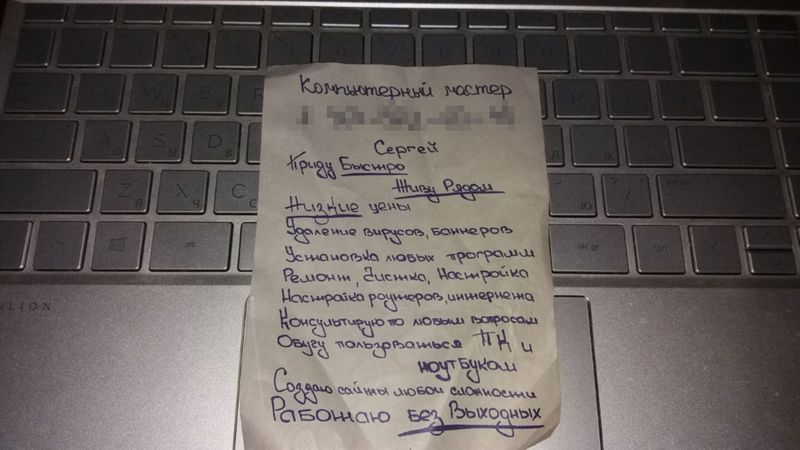 Компьютерный мастер
Сергей
Приду Быстро
Живу Рядом
Низкие цены
Удаление вирусов, баннеров
Установка любых программ
Ремонт, Чистка, Настройка
Настройка роутеров, интернета
Консультирую по любым вопросам
Обучу пользоваться ПК и
ноутбуком
Создаю сайты любой сложности
Работаю без Выходных
alt
alt gr
ctrl
ILION